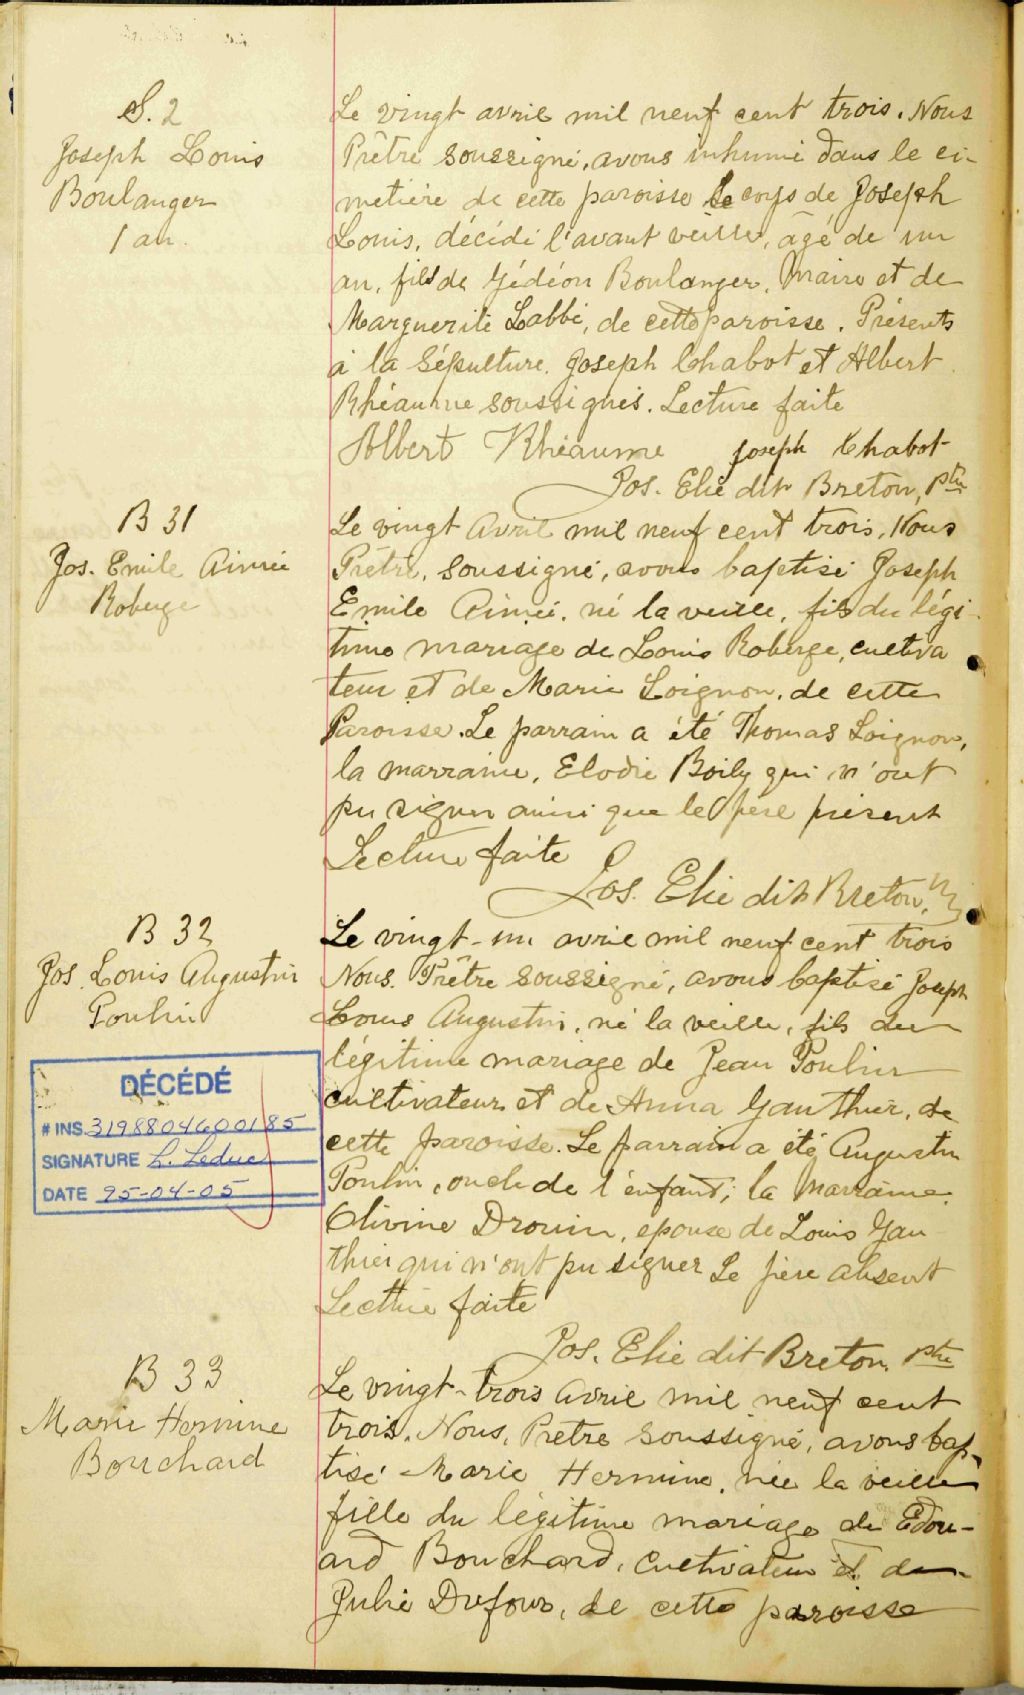 S. 2
Joseph Louis
Boulanger
1 an.
Le vingt avril mil neuf cent trois. Nous
Prêtre soussigné, avons inhumé dans le ci-
metière de cette paroisse le corps de Joseph
Louis, décédé l'avant veille, âgé de un
an, fils de Gédéon Boulanger, Maire et de
Marguerite Labbé, de cette paroisse. Présents
à la sépulture, Joseph Chabot et Albert
Rhéaume soussignés. Lecture faite
Albert Rhéaume Joseph Chabot
Jos. Elie dit Breton, Ptre
B 31
Jos. Emile Aimée
Roberge
Le vingt Avril mil neuf cent trois, Nous
Prêtre, soussigné, avons baptisé Joseph
Emile Aimée, né la veille, fils du légi-
time mariage de Louis Roberge, cultiva
teur et de Marie Loignon, de cette
Paroisse. Le parrain a été Thomas Loignon,
la marraine, Elodie Boily qui n'ont
pu signer ainsi que le père présent
Lecture faite
Jos. Elie dit Breton,
B 32
Jos. Louis Augustin
Poulin
Le vingt-un avril mil neuf cent trois
Nous. Prêtre soussigné, avons baptisé Joseph
Louis Augustin, né la veille, fils du
légitime mariage de Jean Poulin
cultivateur et de Anna Gauthier, de
cette paroisse. Le parrain a été Augustin
Poulin, oncle de l'enfant; la marraine
Olivine Drouin, épouse de Louis Gau
thier qui n'ont pu signer Le père absent
Lecture faite
Jos. Elie dit Breton, Ptre
DÉCÉDÉ
# INS. 3198804600185
SIGNATURE L. Leduc
DATE 95-04-05
B 33
Marie Hermine
Bouchard
Le vingt-trois avril mil neuf cent
trois. Nous, Prêtre soussigné, avons bap-
tisé Marie Hermine, née la veille
fille du légitime mariage de Edou-
ard Bouchard, cultivateur et de
Julie Dufour, de cette paroisse